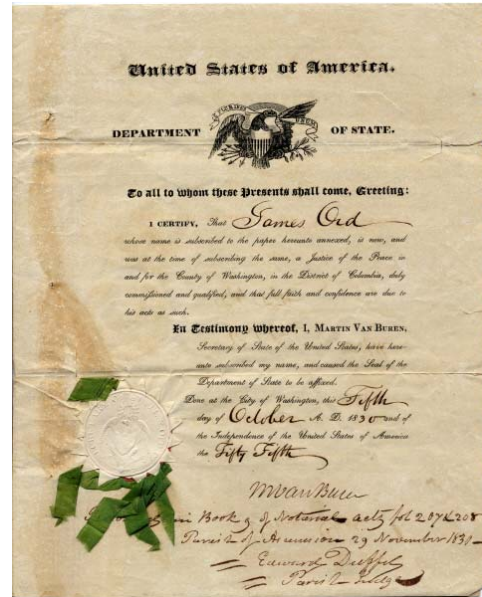 United States of America.
DEPARTMENT OF STATE.
E PLURIBUS UNUM
To all to whom these Presents shall come, Greeting:
I CERTIFY, That James Ord
whose name is subscribed to the paper hereunto annexed, is now, and
was at the time of subscribing the same, a Justice of the Peace in
and for the County of Washington, in the District of Columbia, duly
commissioned and qualified, and that full faith and confidence are due to
his acts as such.
In Testimony whereof, I, MARTIN VAN BUREN,
Secretary of State of the United States, have here-
unto subscribed my name, and caused the Seal of the
Department of State to be affixed.
Done at the City of Washington, this Fifth
day of October A. D. 1830 and of
the Independence of the United States of America
the Fifty Fifth
M Van Buren
in Book 9 of Notarial acts fol 207 & 208
Parish of Ascension 29 November 1830-
Edward Duffel
Parish Judge